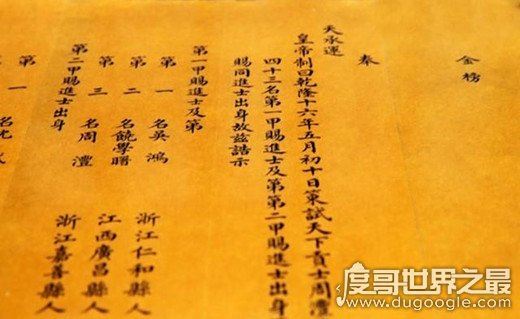 金榜
奉
天承運
皇帝制曰乾隆十六年五月初十日策試天下貢士周澧
四十三名第一甲賜進士及第第二甲賜進士出身
賜同進士出身故茲誥示
第一甲賜進士及第
第一名吳鴻 浙江仁和縣人
第二名饒學曙 江西廣昌縣人
第三名周澧 浙江嘉善縣人
第二甲賜進士出身
第一名沈
度哥世界之最
www.dugoogle.com